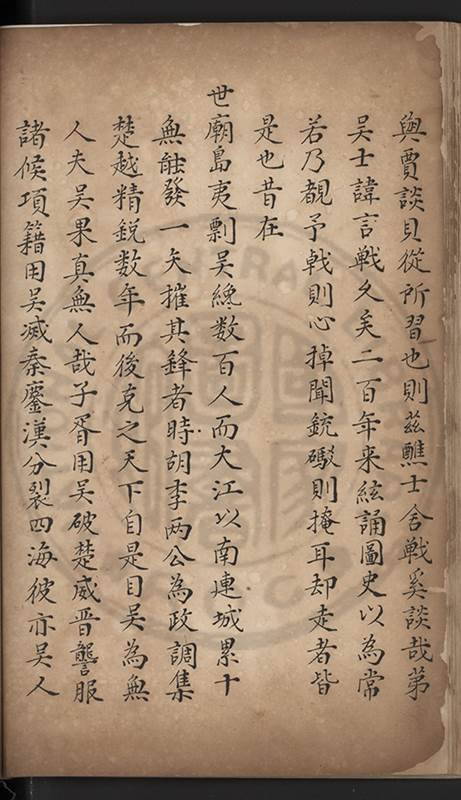 與賈談貝從所習也則茲醮士舍戰奚談哉第
吳士諱言戰久矣二百年来絃誦圖史以為常
若乃覩予戟則心掉聞銃礮則掩耳却走者皆
是也昔在
世廟島夷剽吳纔数百人而大江以南連城累十
無能發一矢摧其鋒者時胡李两公為政調集
楚越精銳数年而後克之天下自是目吳為無
人夫吳果真無人哉子胥用吳破楚威晋讋服
諸侯項籍用吳滅秦鏖漢分裂四海彼亦吳人